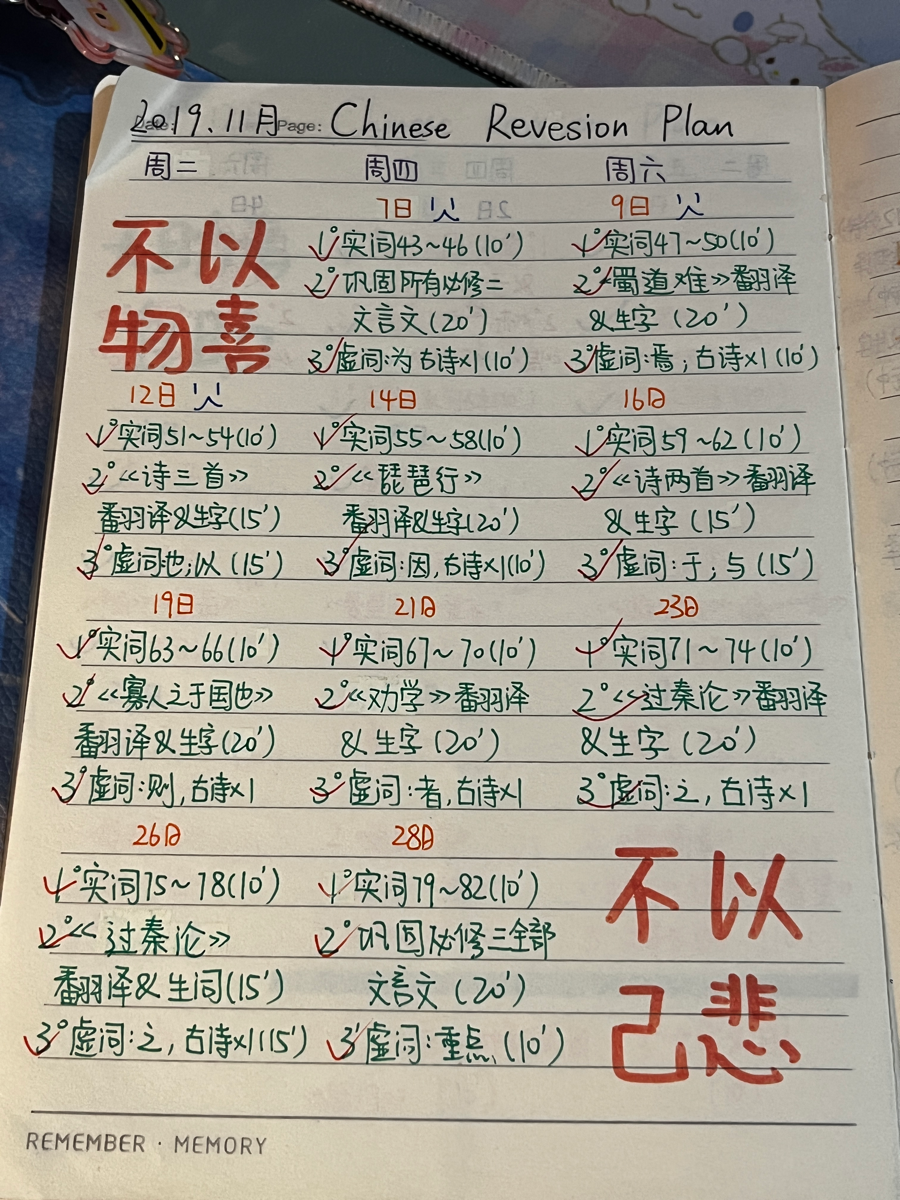 2019.11月 Page: Chinese Revesion Plan
周二 周四 周六
7日 9日
不以
物喜
1°实词43~46(10′)
2°巩固所有必修二
文言文(20′)
3°虚词:为 古诗×1(10′)
1°实词47~50(10′)
2°《蜀道难》翻译
&生字(20′)
3°虚词:焉;古诗×1(10′)
12日 14日 16日
1°实词51~54(10′)
2°《诗三首》
翻译&生字(15′)
3°虚词:也;以(15′)
1°实词55~58(10′)
2°《琵琶行》
翻译&生字(20′)
3°虚词:因,古诗×1(10′)
1°实词59~62(10′)
2°《诗两首》翻译
&生字(15′)
3°虚词:于;与(15′)
19日 21日 23日
1°实词63~66(10′)
2°《寡人之于国也》
翻译&生字(20′)
3°虚词:则,古诗×1
1°实词67~70(10′)
2°《劝学》翻译
&生字(20′)
3°虚词:者,古诗×1
1°实词71~74(10′)
2°《过秦论》翻译
&生字(20′)
3°虚词:之,古诗×1
26日 28日
1°实词75~78(10′)
2°《过秦论》
翻译&生词(15′)
3°虚词:之,古诗×1(15′)
1°实词79~82(10′)
2°巩固必修三全部
文言文(20′)
3°虚词:重点(10′)
不以
己悲
REMEMBER · MEMORY